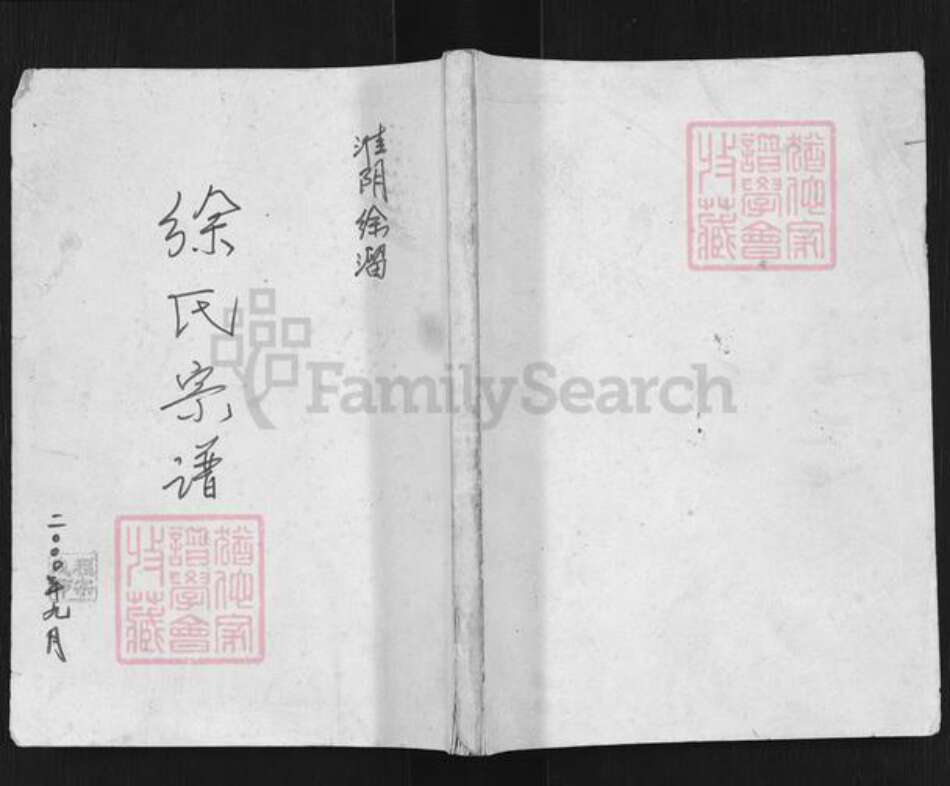 淮阴徐溜
徐氏宗谱
二〇〇〇年九月
猶他家
譜學會
收藏
猶他家
譜學會
收藏
FamilySearch